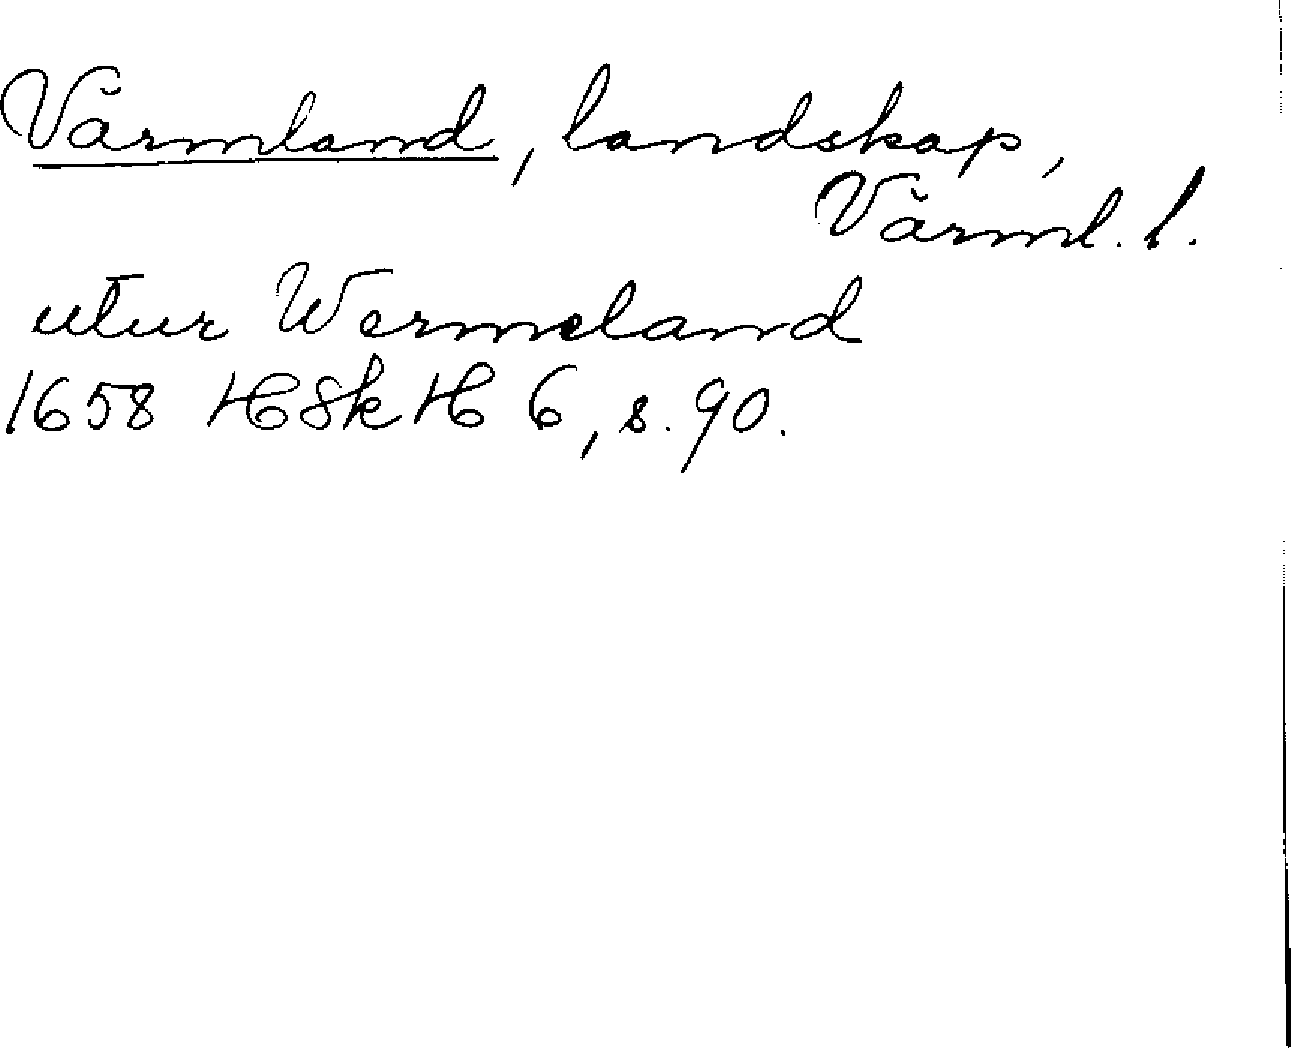 Värmland, landskap,
Värml. l.
utur Wermeland
1658 HSkH 6, s. 90.